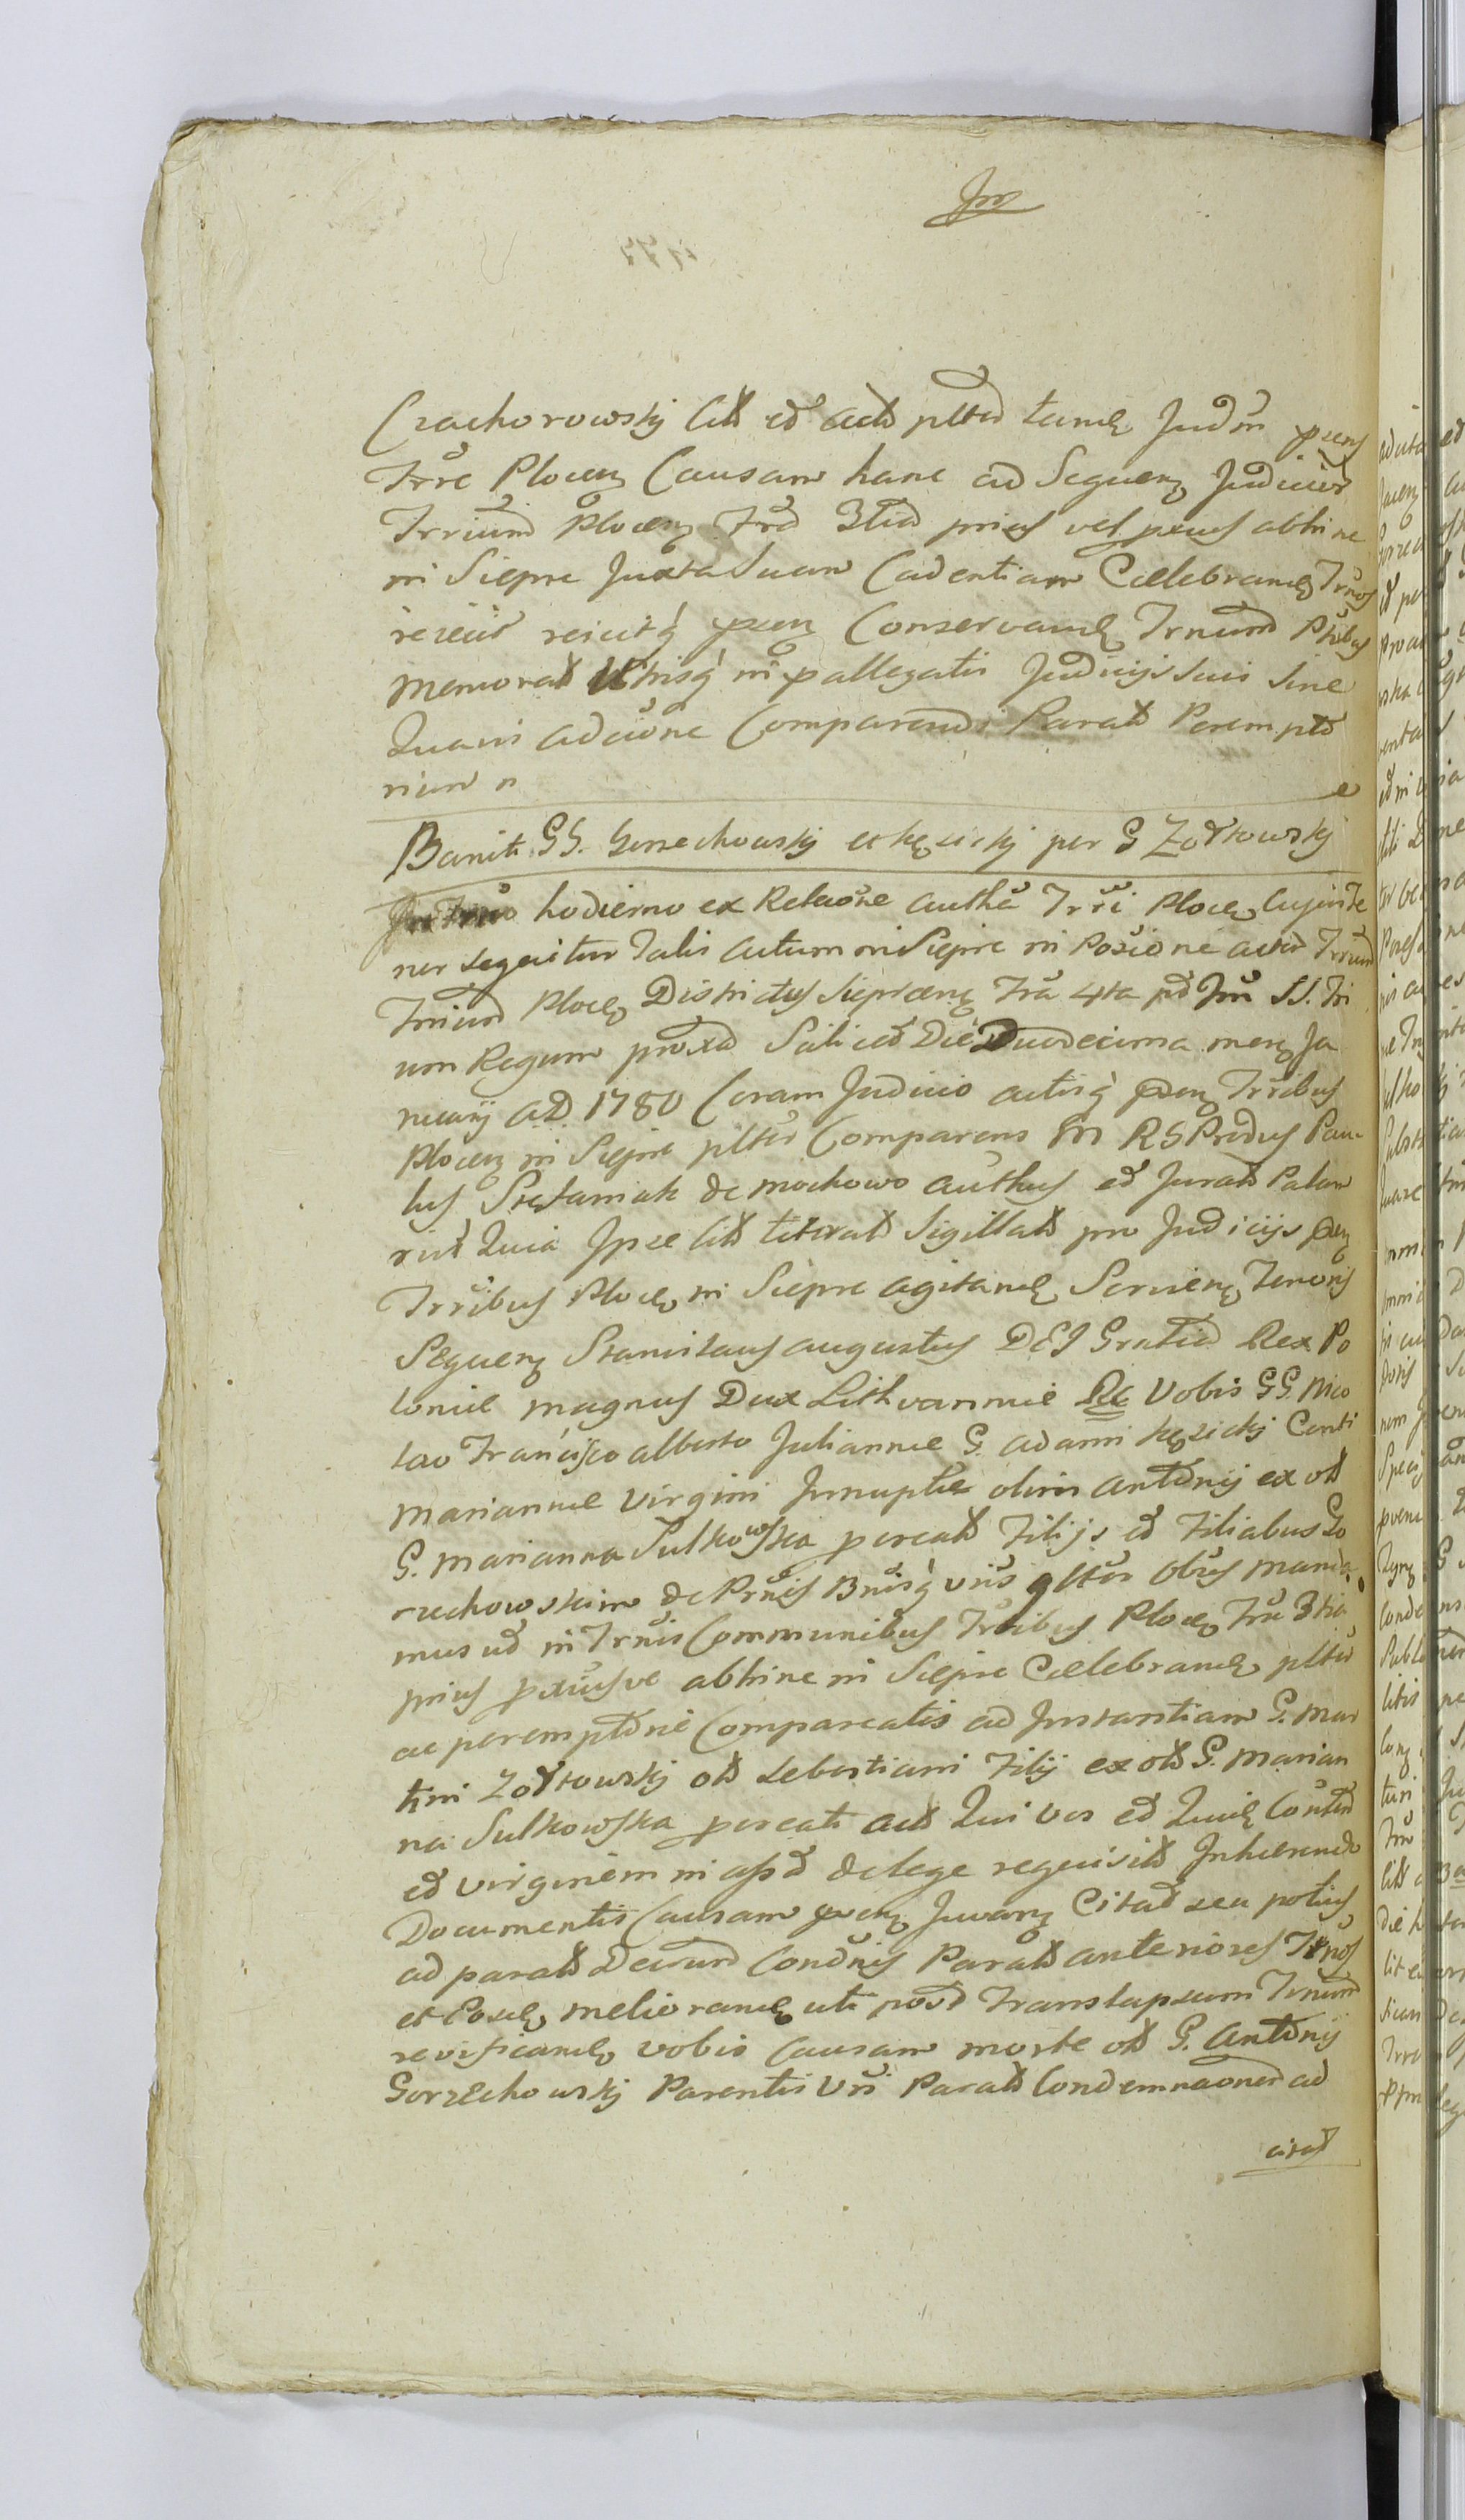 Czachorowskj Citt et Actt pltcr tamq Judm pzens
Trre Plocen Causam hanc ad Sequen Judicior
Trrium Plocen Frâ 3tia prius vel pxius abhinc
in Sieprc Juxta Suam Cadentiam Cælebrand Trnos
reiecit reicitq pzen Conservand Trnum Ptibus
memorat Utrisq in pallegatis Judicijs Suis Sine
Quavis adcione Comparendi Paratt Perempto
rium
Bannit GG. Gorzechowskj et Kęsickj per G Żołtowskj
hodierno ex Relaone Authen Trri Plocen Cujus Te
nor Sequitur Talis Actum in Sieprc in Poxione
Trrium Plocen Districtus Sieprcen Fra 4ta pt Fm SS. Tri
um Regum proxa Scilicet Die Duodecima mens Ja
nuarij A.D. 1780 Coram Judicio actisq pzen Trribus
Plocen in Sieprc pltcr Comparens M RS Prvdus Pau
lus Stefaniak de Mochowo Authus et Juratt Palam
rit Quia Ipse Citt literatt Sigillatt pro Judicijs pzen
Trribus Plocen in Sieprc agitand Servien Tenoris
Sequen Stanislaus Augustus DEI Gratia Rex Po
loniæ Magnus Dux Lithvanniæ &c Vobis GG. Nico
lao Francisco Alberto Juliannæ G. Adami Kęsickj Conti
Mariannæ Virgini Innuptæ olim Antonij ex ott
G. Marianna Sulkowska pcreatt Filijs et Filiabus Go
rzechowskim de Prnis Bnisq vris gltor Obus manda
mus ut in Trnis Communibus Trribus Plocen Fra 3tia
prius pxiusve abhinc in Sieprc Cælebrand pltcr
ac peremptorie Compareatis ad Instantiam G. Mar
tini Żołtowskj ott Sebastiani Filij ex ott G. Marian
na Sulkowska pcreati Actt Qui Vos et Quemlq Contor
et Virginem in Asst de lege requisitt Inhærendo
Documentis Causam pzen Juvan Citat seu potius
ad paratt Decrum Condnis Paratt anteriores Trnos
et Eosdq meliorand uti post Translapsum Trnum
revificand vobis Causam morte ott G. Antonij
Gorzechowskj Parentis Vri Paratt Condemnaonem ad
citat